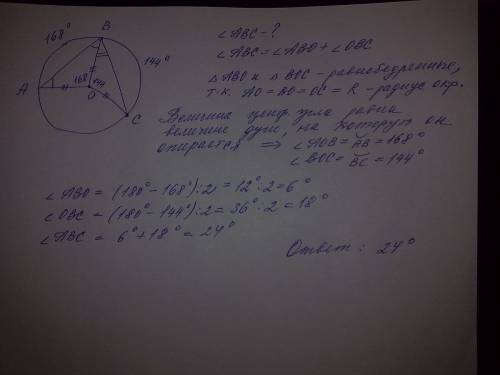 168°
B
144°
A
168
144
O
C
∠ABC - ?
∠ABC = ∠ABO + ∠OBC
△ABO и △BOC - равнобедренные,
т.к. AO = BO = OC = R - радиус окр.
Величина центр. угла равна
величине дуги, на которую он
опирается ⇒ ∠AOB = AB = 168°
∠BOC = BC = 144°
∠ABO = (180° - 168°) : 2 = 12° : 2 = 6°
∠OBC = (180° - 144°) : 2 = 36° : 2 = 18°
∠ABC = 6° + 18° = 24°
Ответ: 24°